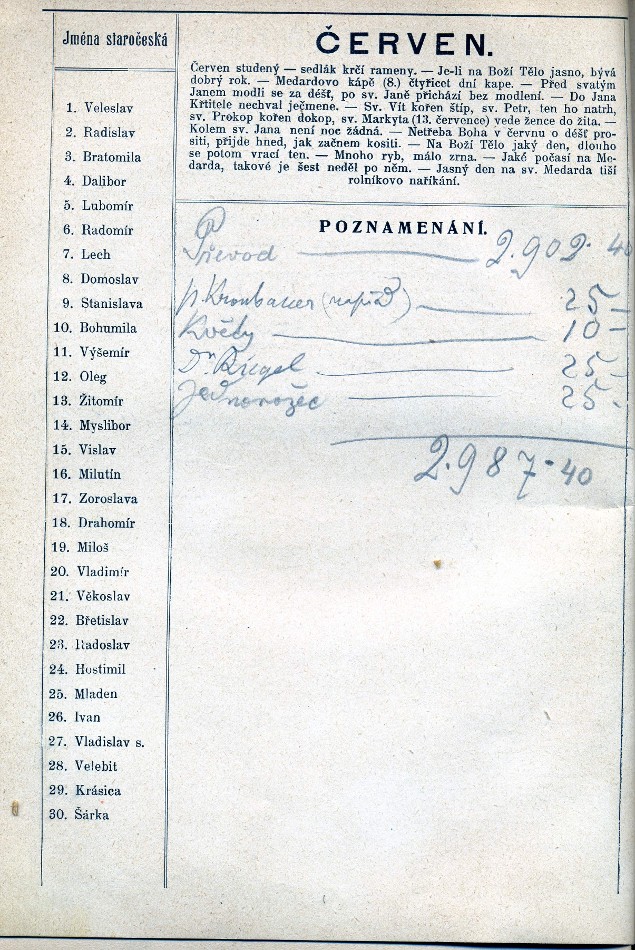 Jména staročeská
1. Veleslav
2. Radislav
3. Bratomila
4. Dalibor
5. Lubomír
6. Radomír
7. Lech
8. Domoslav
9. Stanislava
10. Bohumila
11. Výšemír
12. Oleg
13. Žitomír
14. Myslibor
15. Vislav
16. Milutín
17. Zoroslava
18. Drahomír
19. Miloš
20. Vladimír
21. Věkoslav
22. Břetislav
23. Radoslav
24. Hostimil
25. Mladen
26. Ivan
27. Vladislav s.
28. Velebit
29. Krásica
30. Šárka
ČERVEN.
Červen studený — sedlák krčí rameny. — Je-li na Boží Tělo jasno, bývá
dobrý rok. — Medardovo kápě (8.) čtyřicet dní kape. — Před svatým
Janem modli se za déšť, po sv. Janě přichází bez modlení. — Do Jana
Křtitele nechval ječmene. — Sv. Vít kořen štíp, sv. Petr, ten ho natrh,
sv. Prokop kořen dokop, sv. Markyta (13. července) vede žence do žita. —
Kolem sv. Jana není noc žádná. — Netřeba Boha v červnu o déšť pro-
siti, přijde hned, jak začnem kositi. — Na Boží Tělo jaký den, dlouho
se potom vrací ten. — Mnoho ryb, málo zrna. — Jaké počasí na Me-
darda, takové je šest neděl po něm. — Jasný den na sv. Medarda tiší
rolníkovo naříkání.
POZNAMENÁNÍ.
Převod — 2.902·40
p. Kronbauer — 25–
Květy — 10–
Dr. Riegel — 25–
Jednorožec — 25–
2.987·40